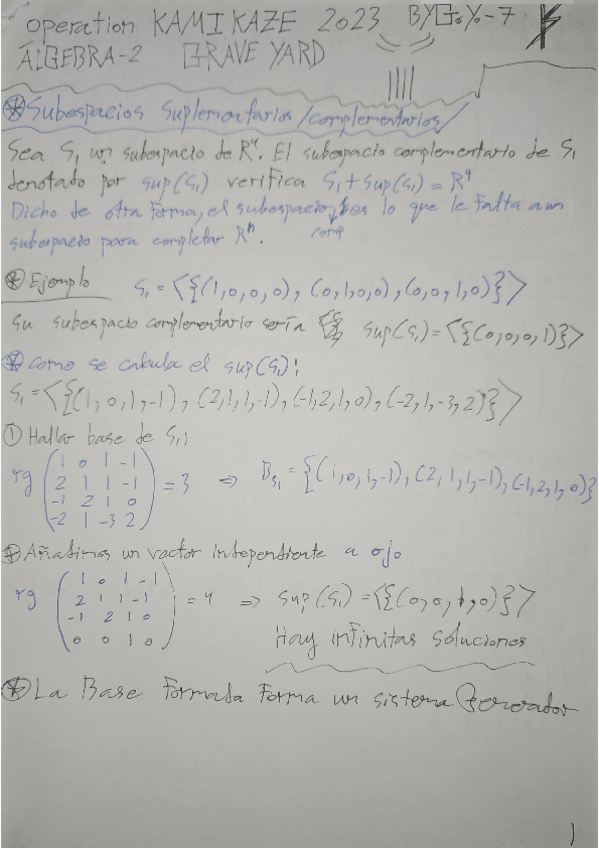 operation KAMIKAZE 2023 BYG.Y.-7
ÁLGEBRA-2 GRAVE YARD
Subespacios Suplementarios/complementarios/
Sea S₁ un subespacio de R⁴. El subespacio complementario de S₁
denotado por sup(S₁) verifica S₁+sup(S₁) = R⁴
Dicho de otra forma, el subespacio es lo que le falta a un
comp
subespacio para completar Rⁿ.
Ejemplo S₁ = <{(1,0,0,0), (0,1,0,0), (0,0,1,0)}>
su subespacio complementario sería sup(S₁) = <{(0,0,0,1)}>
como se calcula el sup(S₁):
S₁ = <{(1,0,1,-1), (2,1,1,-1), (-1,2,1,0), (-2,1,-3,2)}>
① Hallar base de S₁:
rg (1 0 1 -1
2 1 1 -1
-1 2 1 0
-2 1 -3 2) = 3 => B_S₁ = {(1,0,1,-1), (2,1,1,-1), (-1,2,1,0)}
Añadimos un vector independiente a ojo
rg (1 0 1 -1
2 1 1 -1
-1 2 1 0
0 0 1 0) = 4 => sup(S₁) = <{(0,0,1,0)}>
Hay infinitas soluciones
La Base formada forma un sistema Generador
1